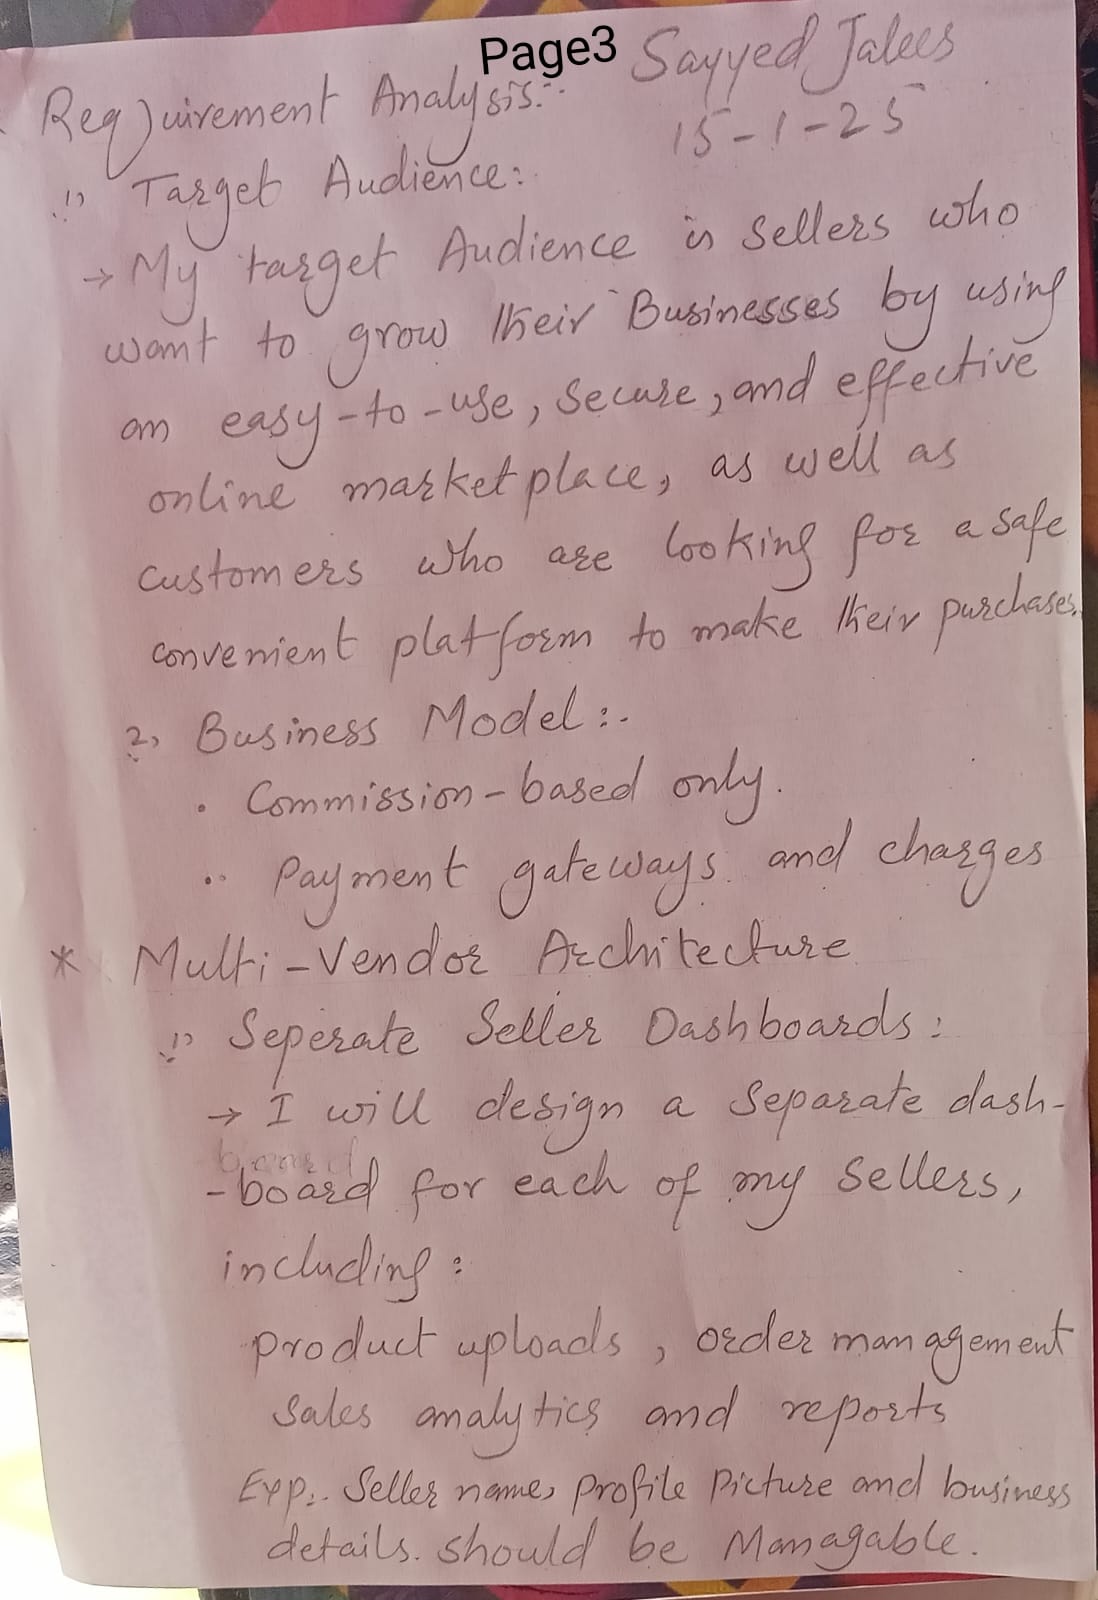 Page3 Sayyed Jalees
Requirement Analysis:-
15-1-25
1) Target Audience:
→ My target Audience is sellers who
want to grow their Businesses by using
an easy-to-use, secure, and effective
online marketplace, as well as
customers who are looking for a safe
convenient platform to make their purchases.
2, Business Model:-
. Commission-based only.
.. Payment gateways and charges
* Multi-Vendor Architecture
1) Seperate Seller Dashboards:
→ I will design a separate dash-
-board for each of my sellers,
including:
product uploads, order management
Sales analytics and reports
Exp:. Seller name, Profile Picture and business
details. should be Managable.